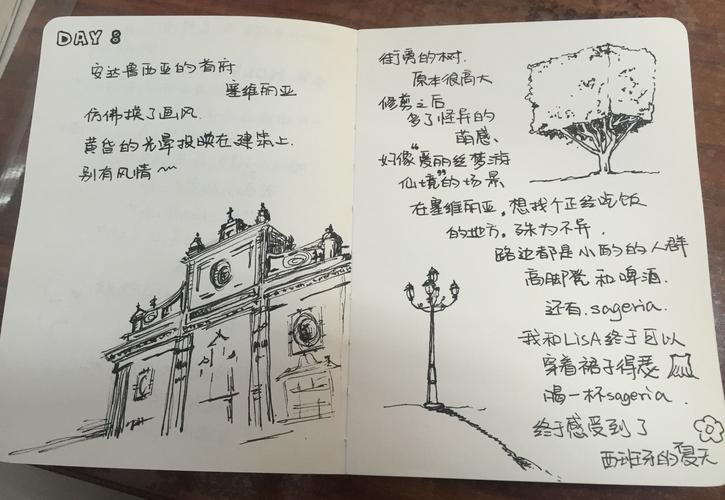 DAY 8
安达鲁西亚的首府
塞维丽亚
仿佛换了画风.
黄昏的光晕投映在建筑上.
别有风情~
街旁的树.
原本很高大
修剪之后
多了怪异的
萌感.
好像“爱丽丝梦游
仙境”的场景
在塞维丽亚。想找个正经吃饭
的地方。殊为不异.
路边都是小酌的人群
高脚凳和啤酒.
还有.sageria.
我和LiSA终于可以
穿着裙子得瑟
喝一杯sageria.
终于感受到了
西班牙的夏天